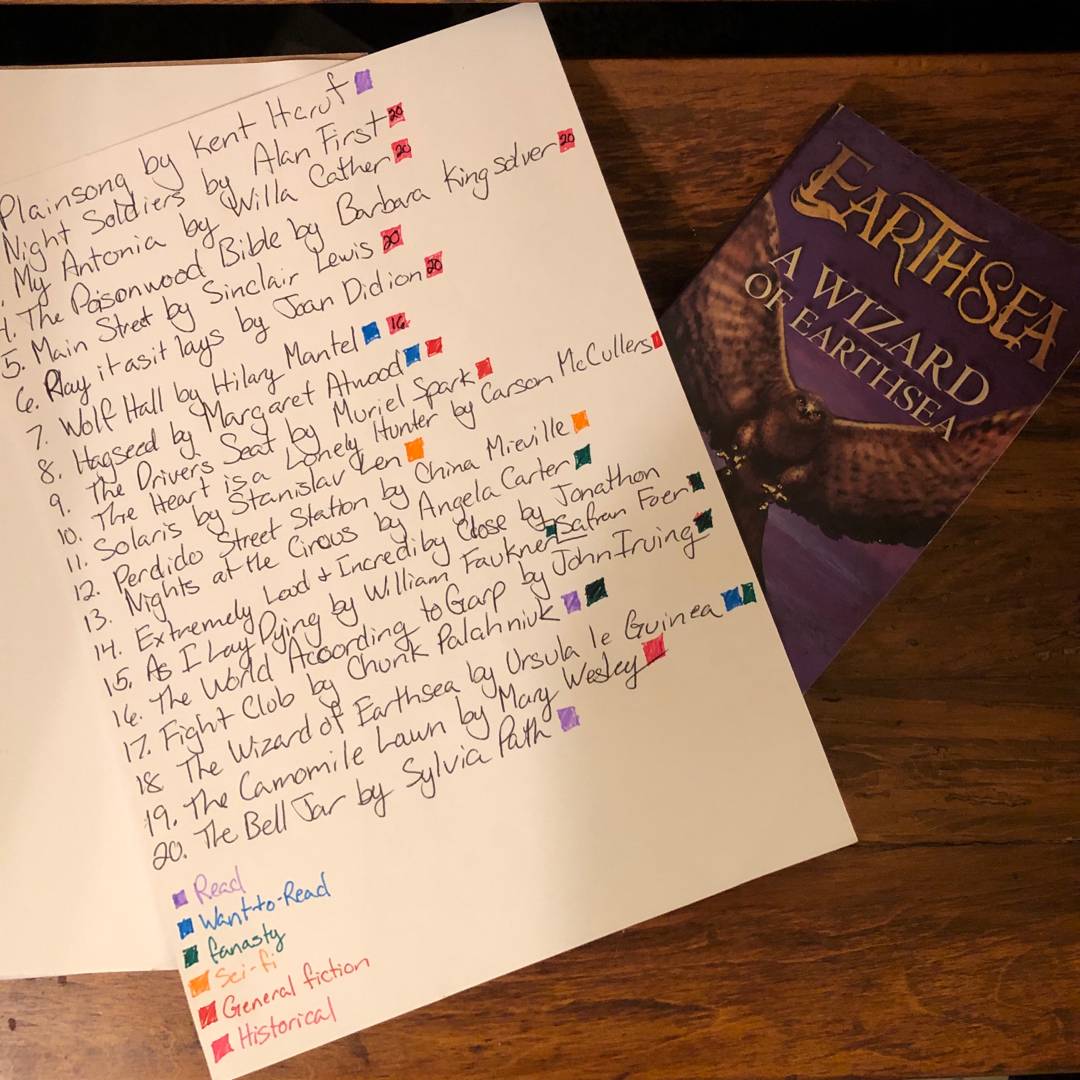 Plainsong by Kent Haruf
Night Soldiers by Alan First 20
My Antonia by Willa Cather 20
4. The Poisonwood Bible by Barbara Kingsolver 20
5. Main Street by Sinclair Lewis 20
6. Play it as it lays by Joan Didion 20
7. Wolf Hall by Hilary Mantel 16
8. Hagseed by Margaret Atwood
9. The Drivers Seat by Muriel Spark
10. The Heart is a Lonely Hunter by Carson McCullers
11. Solaris by Stanislav Len
12. Perdido Street Station by China Mieville
13. Nights at the Circus by Angela Carter
14. Extremely Loud + Incrediby Close by Jonathon
Safran Foer
15. As I Lay Dying by William Faukner
16. The World According to Garp by John Irving
17. Fight Club by Chunk Palahniuk
18 The Wizard of Earthsea by Ursula le Guinea
19. The Camomile Lawn by Mary Wesley
20. The Bell Jar by Sylvia Path
Read
Want-to-Read
fanasty
Sci-fi
General fiction
Historical
EARTHSEA
A WIZARD
OF EARTHSEA